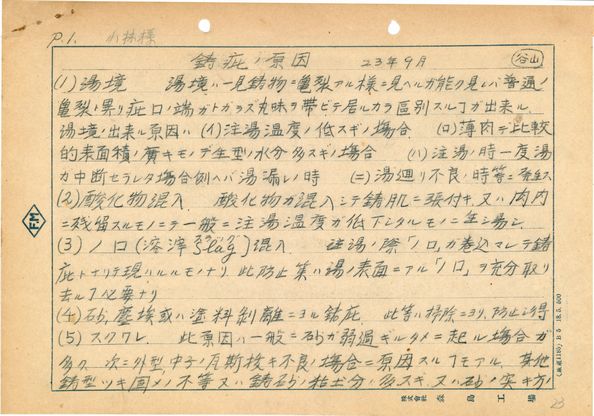 P.1. 小林様
鋳疵ノ原因 23年9月 谷山
(1) 湯境 湯境ハ一見鋳物ニ亀裂アル様ニ見ヘルガ能ク見レバ普通ノ
亀裂ト異リ疵口ノ端ガトガラズ丸味ヲ帯ビテ居ルカラ區別スルヿガ出来ル
湯境ノ出来ル原因ハ (イ) 注湯温度ノ低スギノ場合 (ロ) 薄肉デ比較
的表面積ノ廣キモノデ生型ノ水分多スギノ場合 (ハ) 注湯ノ時一度湯
ガ中断セラレタ場合例ヘバ湯漏レノ時 (ニ) 湯廻リ不良ノ時等ニ発生ス
(2) 酸化物混入 酸化物ガ混入シテ鋳肌ニ張付キ又ハ肉内
ニ残留スルモノニテ一般ニ注湯温度ガ低下シタルモノニ生ジ易シ
(3) ノロ (溶滓 Slag) 混入 注湯ノ際「ノロ」ガ巻込マレテ鋳
疵トナリテ現ハルルモノナリ 此防止策ハ湯ノ表面ニアル「ノロ」ヲ充分取リ
去ルヿ必要ナリ
(4) 砂、塵埃或ハ塗料剥離ニヨル鋳疵 此等ハ掃除ニヨリ防止シ得
(5) スクワレ 此原因ハ一般ニ砂ガ弱過ギルタメニ起ル場合ガ
多ク 次ニ外型、中子ノ瓦斯抜キ不良ノ場合ニ原因スルヿモアル 其他
鋳型ツキ固メノ不等又ハ鋳砂ノ粘土分ノ多スギ、又ハ砂ノ突キ方
FM
株式會社 森島工場
B5
23